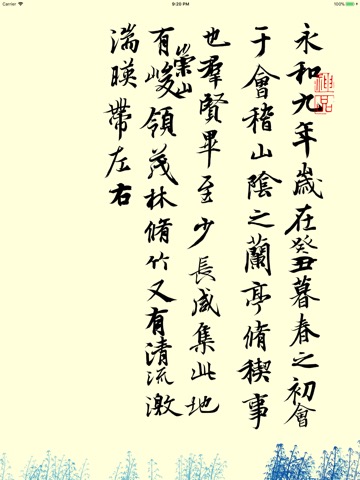 Carrier
8:20 PM
100%
永和九年歲在癸丑暮春之初會
于會稽山陰之蘭亭脩稧事
也羣賢畢至少長咸集此地
有崇山峻領茂林脩竹又有清流激
湍暎帶左右
神品